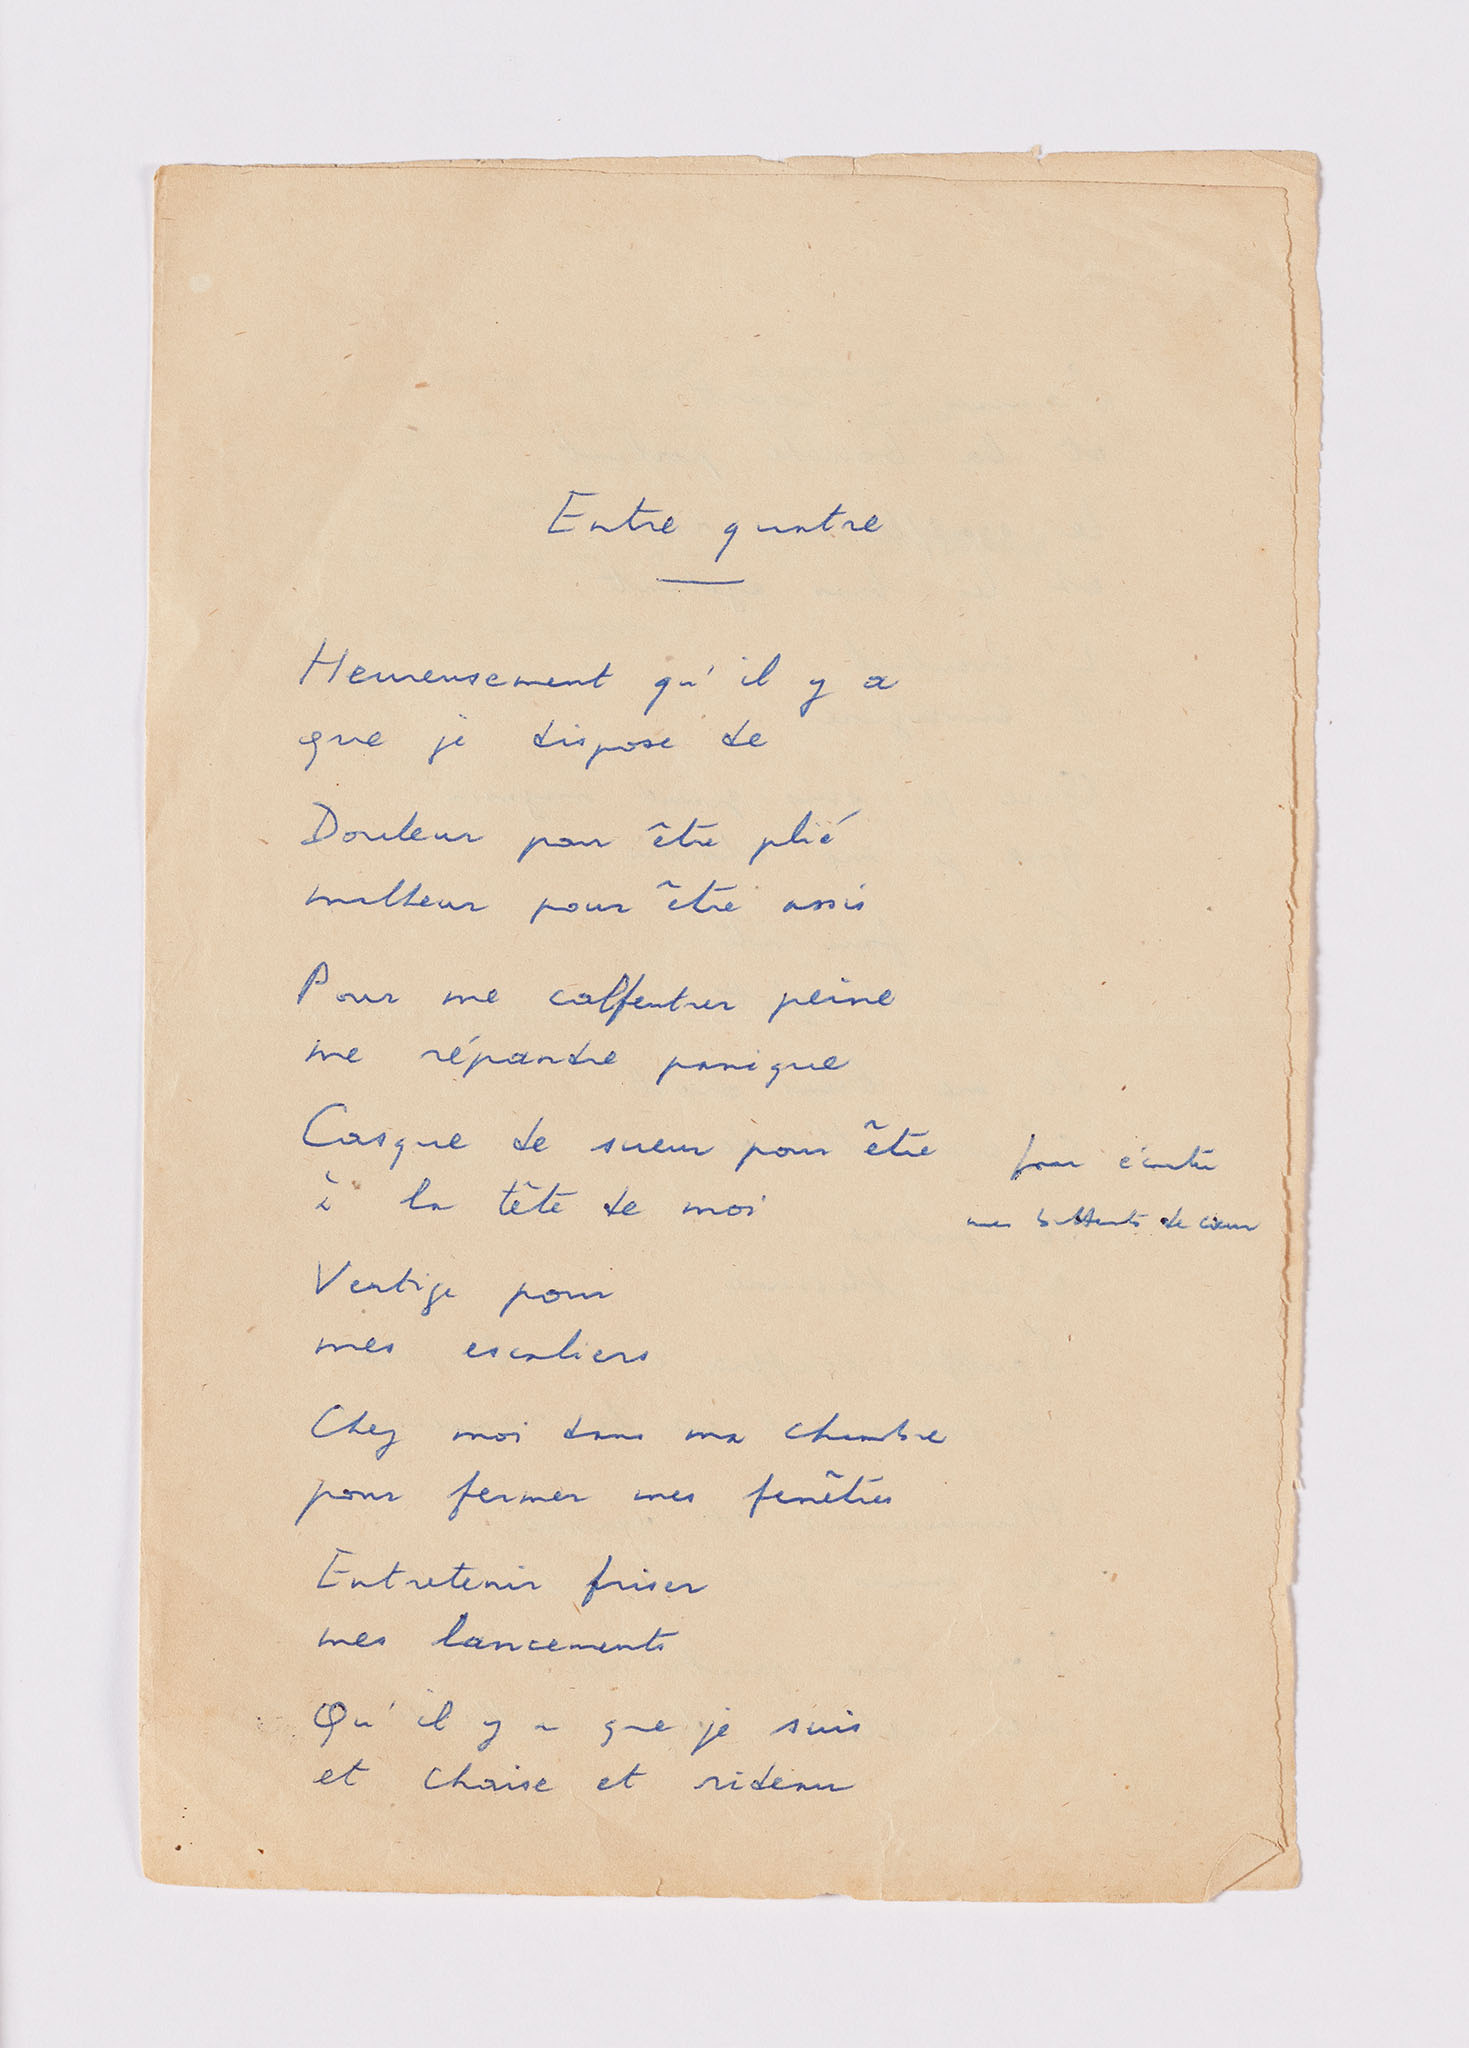 Entre quatre
Heureusement qu'il y a
que je dispose de
Douleur pour être plié
malheur pour être assis
Pour me calfeutrer peine
me répandre panique
Casque de sueur pour être
à la tête de moi
pour écouter
mes battants de cœur
Vertige pour
mes escaliers
Chez moi dans ma chambre
pour fermer mes fenêtres
Entretenir friser
mes lancements
Qu'il y a que je suis
et chaise et rideau